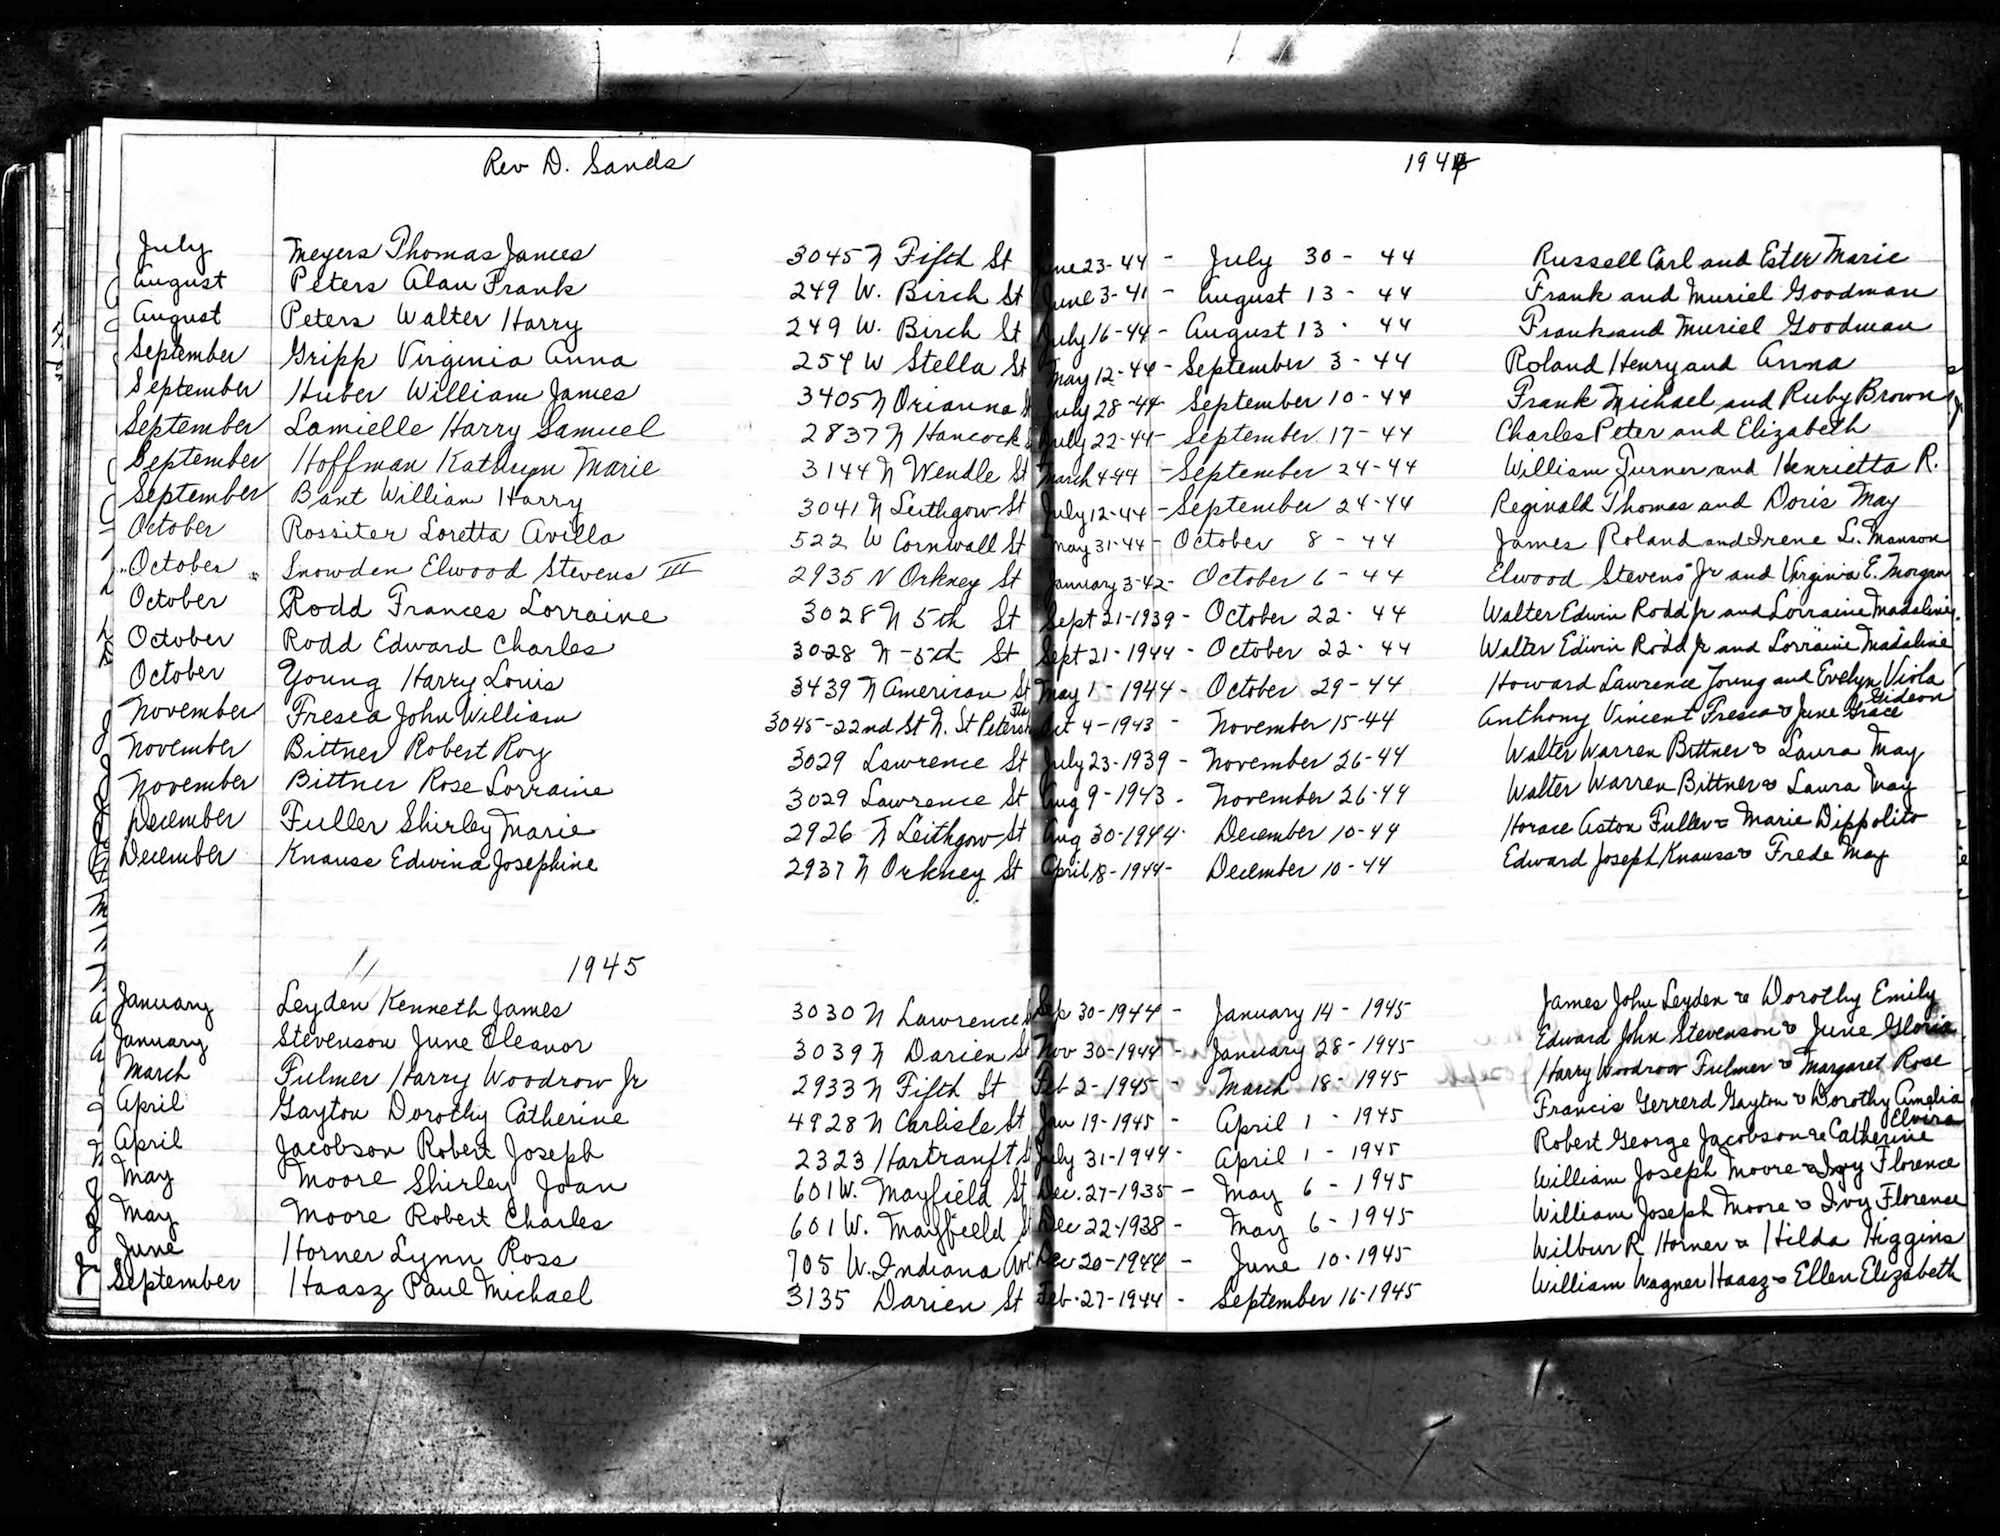 Rev D. Sands 1944
July Meyers Thomas James 3045 N Fifth St June 23-44 - July 30 - 44 Russell Carl and Ester Marie
August Peters Alan Frank 249 W. Birch St June 3-41 - August 13 - 44 Frank and Muriel Goodman
August Peters Walter Harry 249 W. Birch St July 16-44 - August 13 - 44 Frank and Muriel Goodman
September Gripp Virginia Anna 254 W Stella St May 12-44 - September 3 - 44 Roland Henry and Anna
September Huber William James 3405 N Orianna July 28-44 - September 10 - 44 Frank Michael and Ruby Brown
September Lamielle Harry Samuel 2837 N Hancock July 22-44 - September 17 - 44 Charles Peter and Elizabeth
September Hoffman Kathryn Marie 3144 N Wendle St March 4-44 - September 24-44 William Turner and Henrietta R.
September Bant William Harry 3041 N Leithgow St July 12-44 - September 24-44 Reginald Thomas and Doris May
October Rossiter Loretta Avilla 522 W Cornwall St May 31-44 - October 8 - 44 James Roland and Irene L. Manson
October Snowden Elwood Stevens III 2935 N Orkney St January 3-42 - October 6 - 44 Elwood Stevens Jr and Virginia E. Morgan
October Rodd Frances Lorraine 3028 N 5th St Sept 21-1939 - October 22 - 44 Walter Edwin Rodd Jr and Lorraine Madaline
October Rodd Edward Charles 3028 N - 5th St Sept 21-1944 - October 22 - 44 Walter Edwin Rodd Jr and Lorraine Madaline
October Young Harry Louis 3439 N American St May 1 - 1944 - October 29 - 44 Howard Lawrence Young and Evelyn Viola Gideon
November Fresca John William 3045-22nd St N. St Peters Fla Oct 4-1943 - November 15-44 Anthony Vincent Fresca & June Grace
November Bittner Robert Roy 3029 Lawrence St July 23-1939 - November 26-44 Walter Warren Bittner & Laura May
November Bittner Rose Lorraine 3029 Lawrence St Aug 9-1943 - November 26-44 Walter Warren Bittner & Laura May
December Fuller Shirley Marie 2926 N Leithgow St Aug 30-1944 - December 10-44 Horace Aston Fuller & Marie Dippolito
December Knauss Edwina Josephine 2937 N Orkney St April 18-1944 - December 10-44 Edward Joseph Knauss & Frede May
1945
January Leyden Kenneth James 3030 N Lawrence Sep 30-1944 - January 14 - 1945 James John Leyden & Dorothy Emily
January Stevenson June Eleanor 3039 N Darien St Nov 30-1944 - January 28 - 1945 Edward John Stevenson & June Gloria
March Fulmer Harry Woodrow Jr 2933 N Fifth St Feb 2-1945 - March 18 - 1945 Harry Woodrow Fulmer & Margaret Rose
April Gayton Dorothy Catherine 4928 N Carlisle St Jan 19-1945 - April 1 - 1945 Francis Gerrerd Gayton & Dorothy Amelia
April Jacobson Robert Joseph 2323 Hartranft St July 31-1944 - April 1 - 1945 Robert George Jacobson & Catherine Elvira
May Moore Shirley Joan 601 W. Mayfield St Dec. 27-1935 - May 6 - 1945 William Joseph Moore & Ivy Florence
May Moore Robert Charles 601 W. Mayfield St Dec 22-1938 - May 6 - 1945 William Joseph Moore & Ivy Florence
June Horner Lynn Ross 705 W. Indiana Ave Dec 20-1944 - June 10 - 1945 Wilbur R Horner & Hilda Higgins
September Haasz Paul Michael 3135 Darien St Feb-27-1944 - September 16-1945 William Wagner Haasz & Ellen Elizabeth